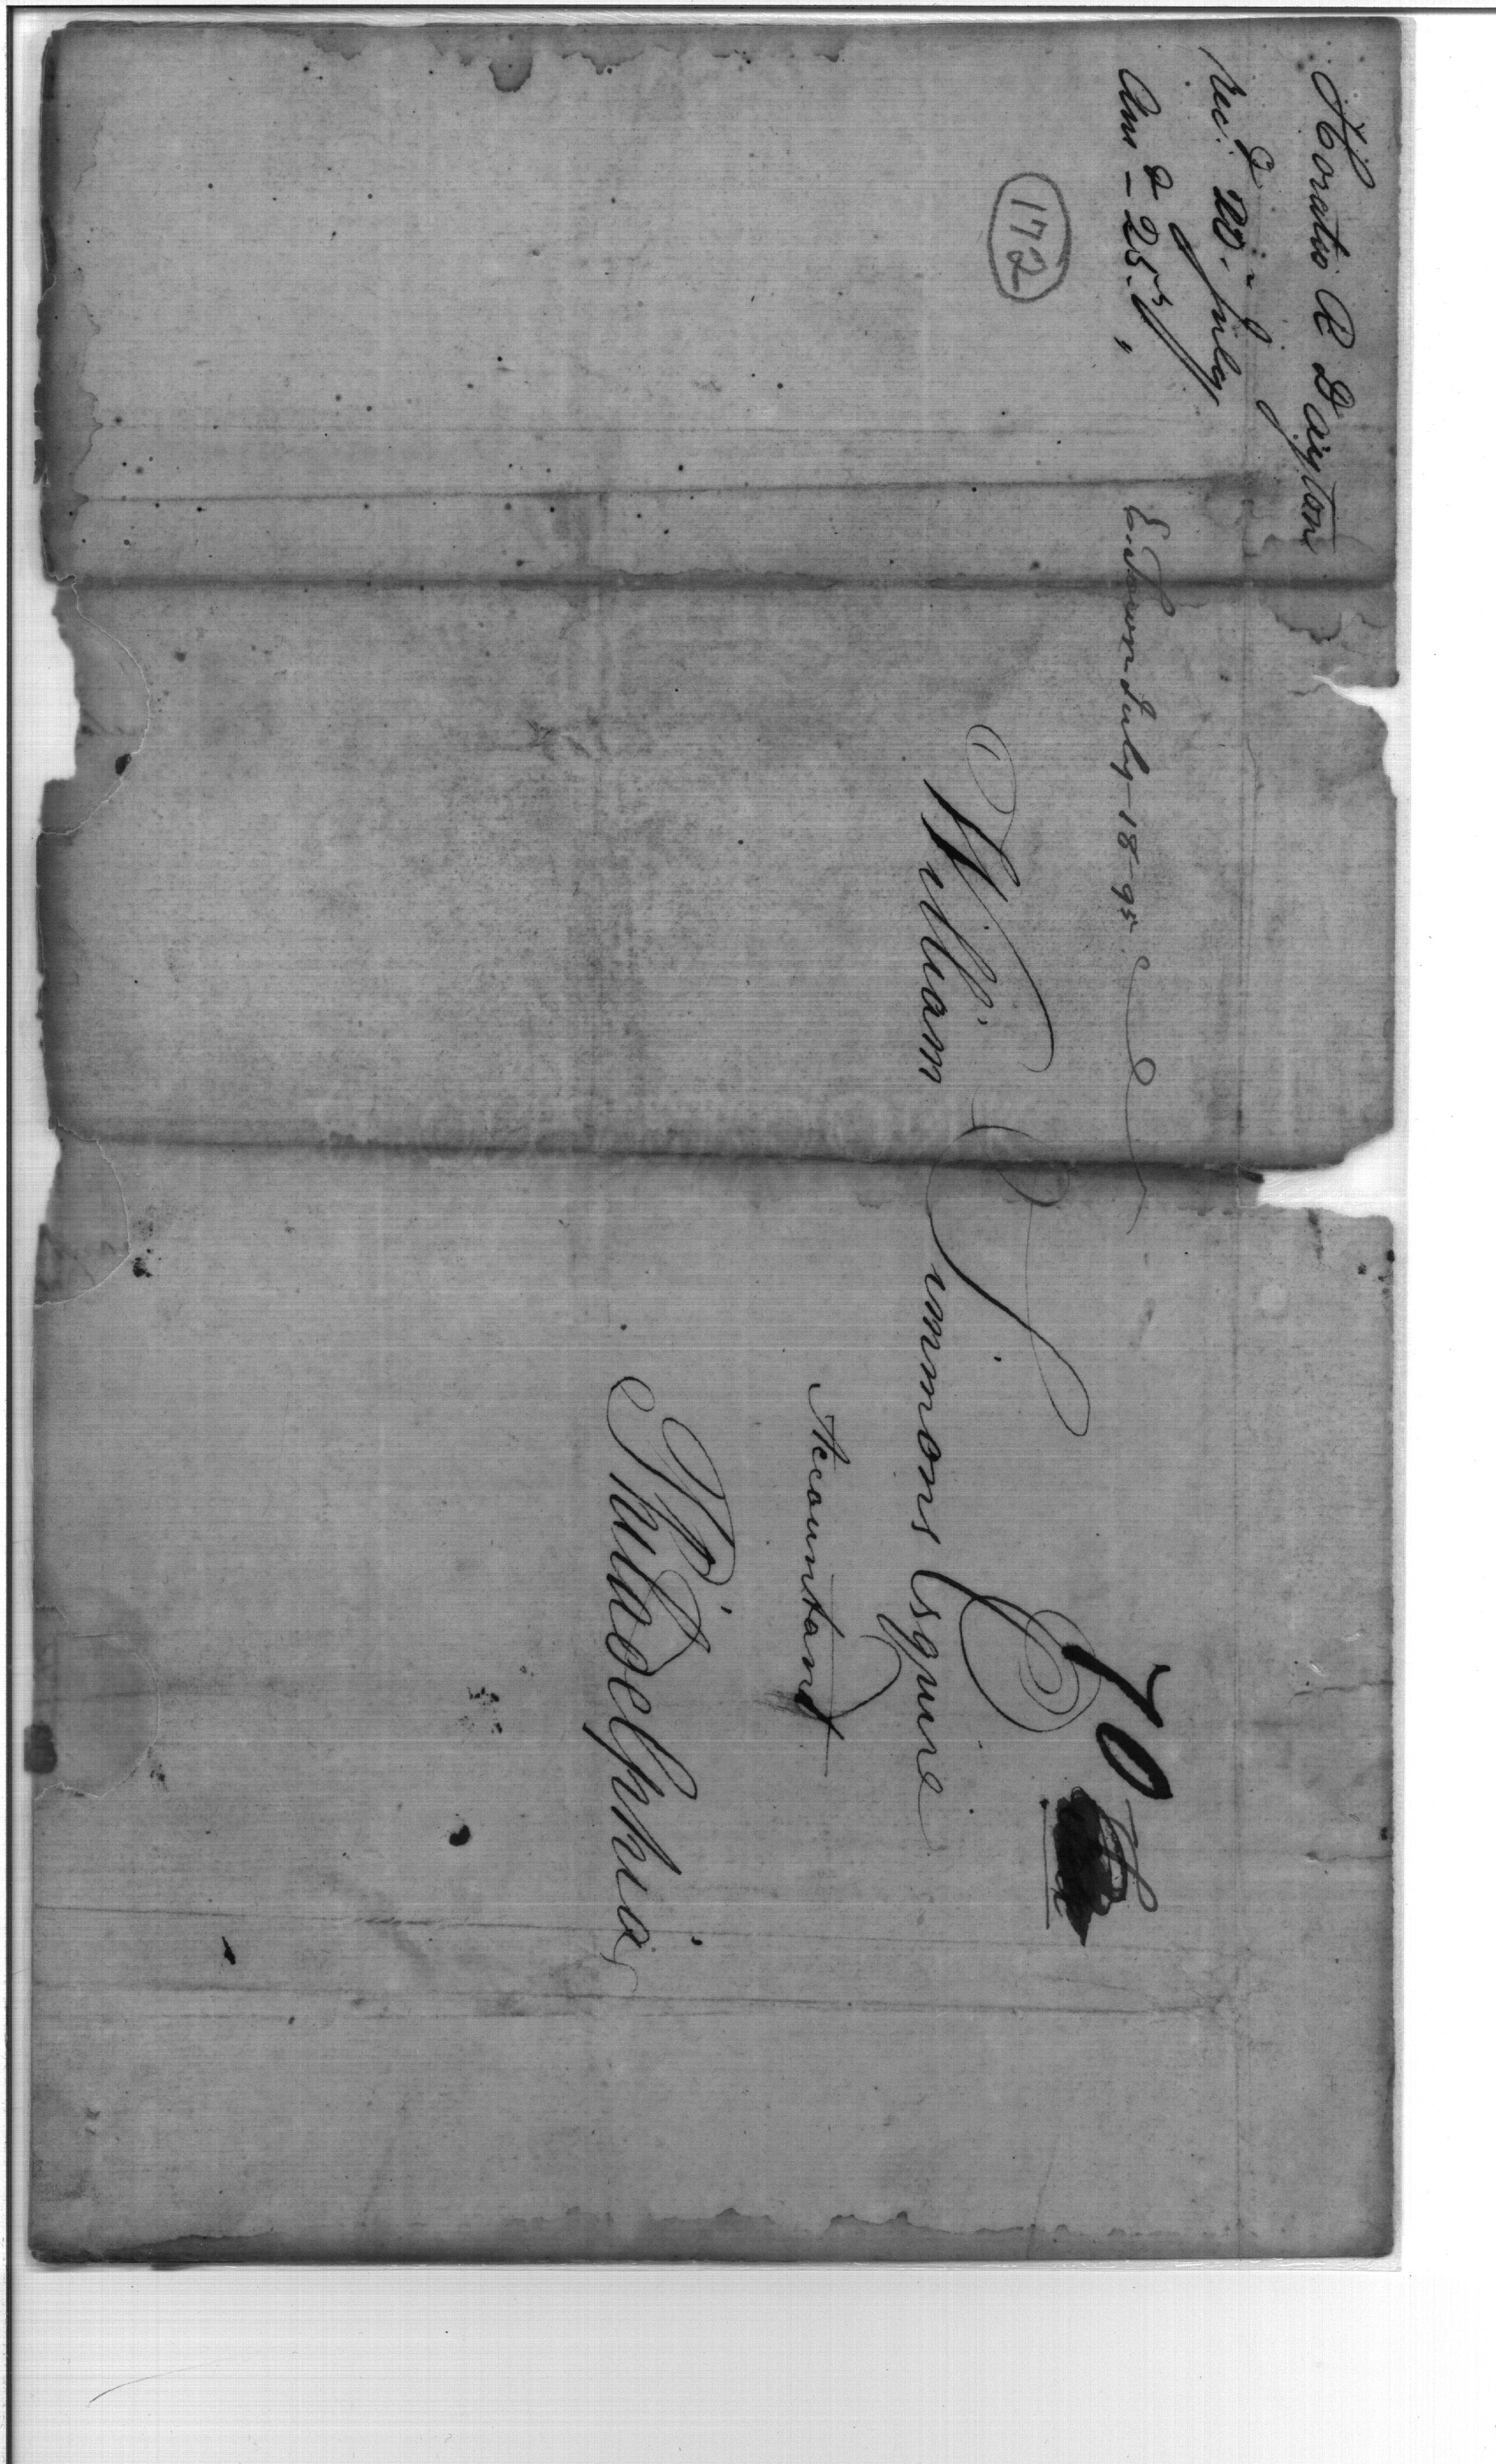 Horatio R Dayton
Rec.d 20.th July
Ans.d – 25.th
172
E. Town July 18 95
70
William Simmons Esquire
Accountant
Philadelphia